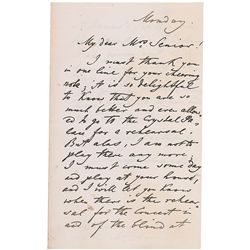 Monday.
My dear Mrs Senior!
I must thank you
in one line for your cheering
note; it is so delightful
to know that you are so
much better and even allow-
ed to go to the Crystal Pa-
lace for a rehearsal.
But alas, I am not to
play there any more;
I must come some day
and play at your house,
and I will let you know
when there is the rehear-
sal for the Concert in
aid of the blind at